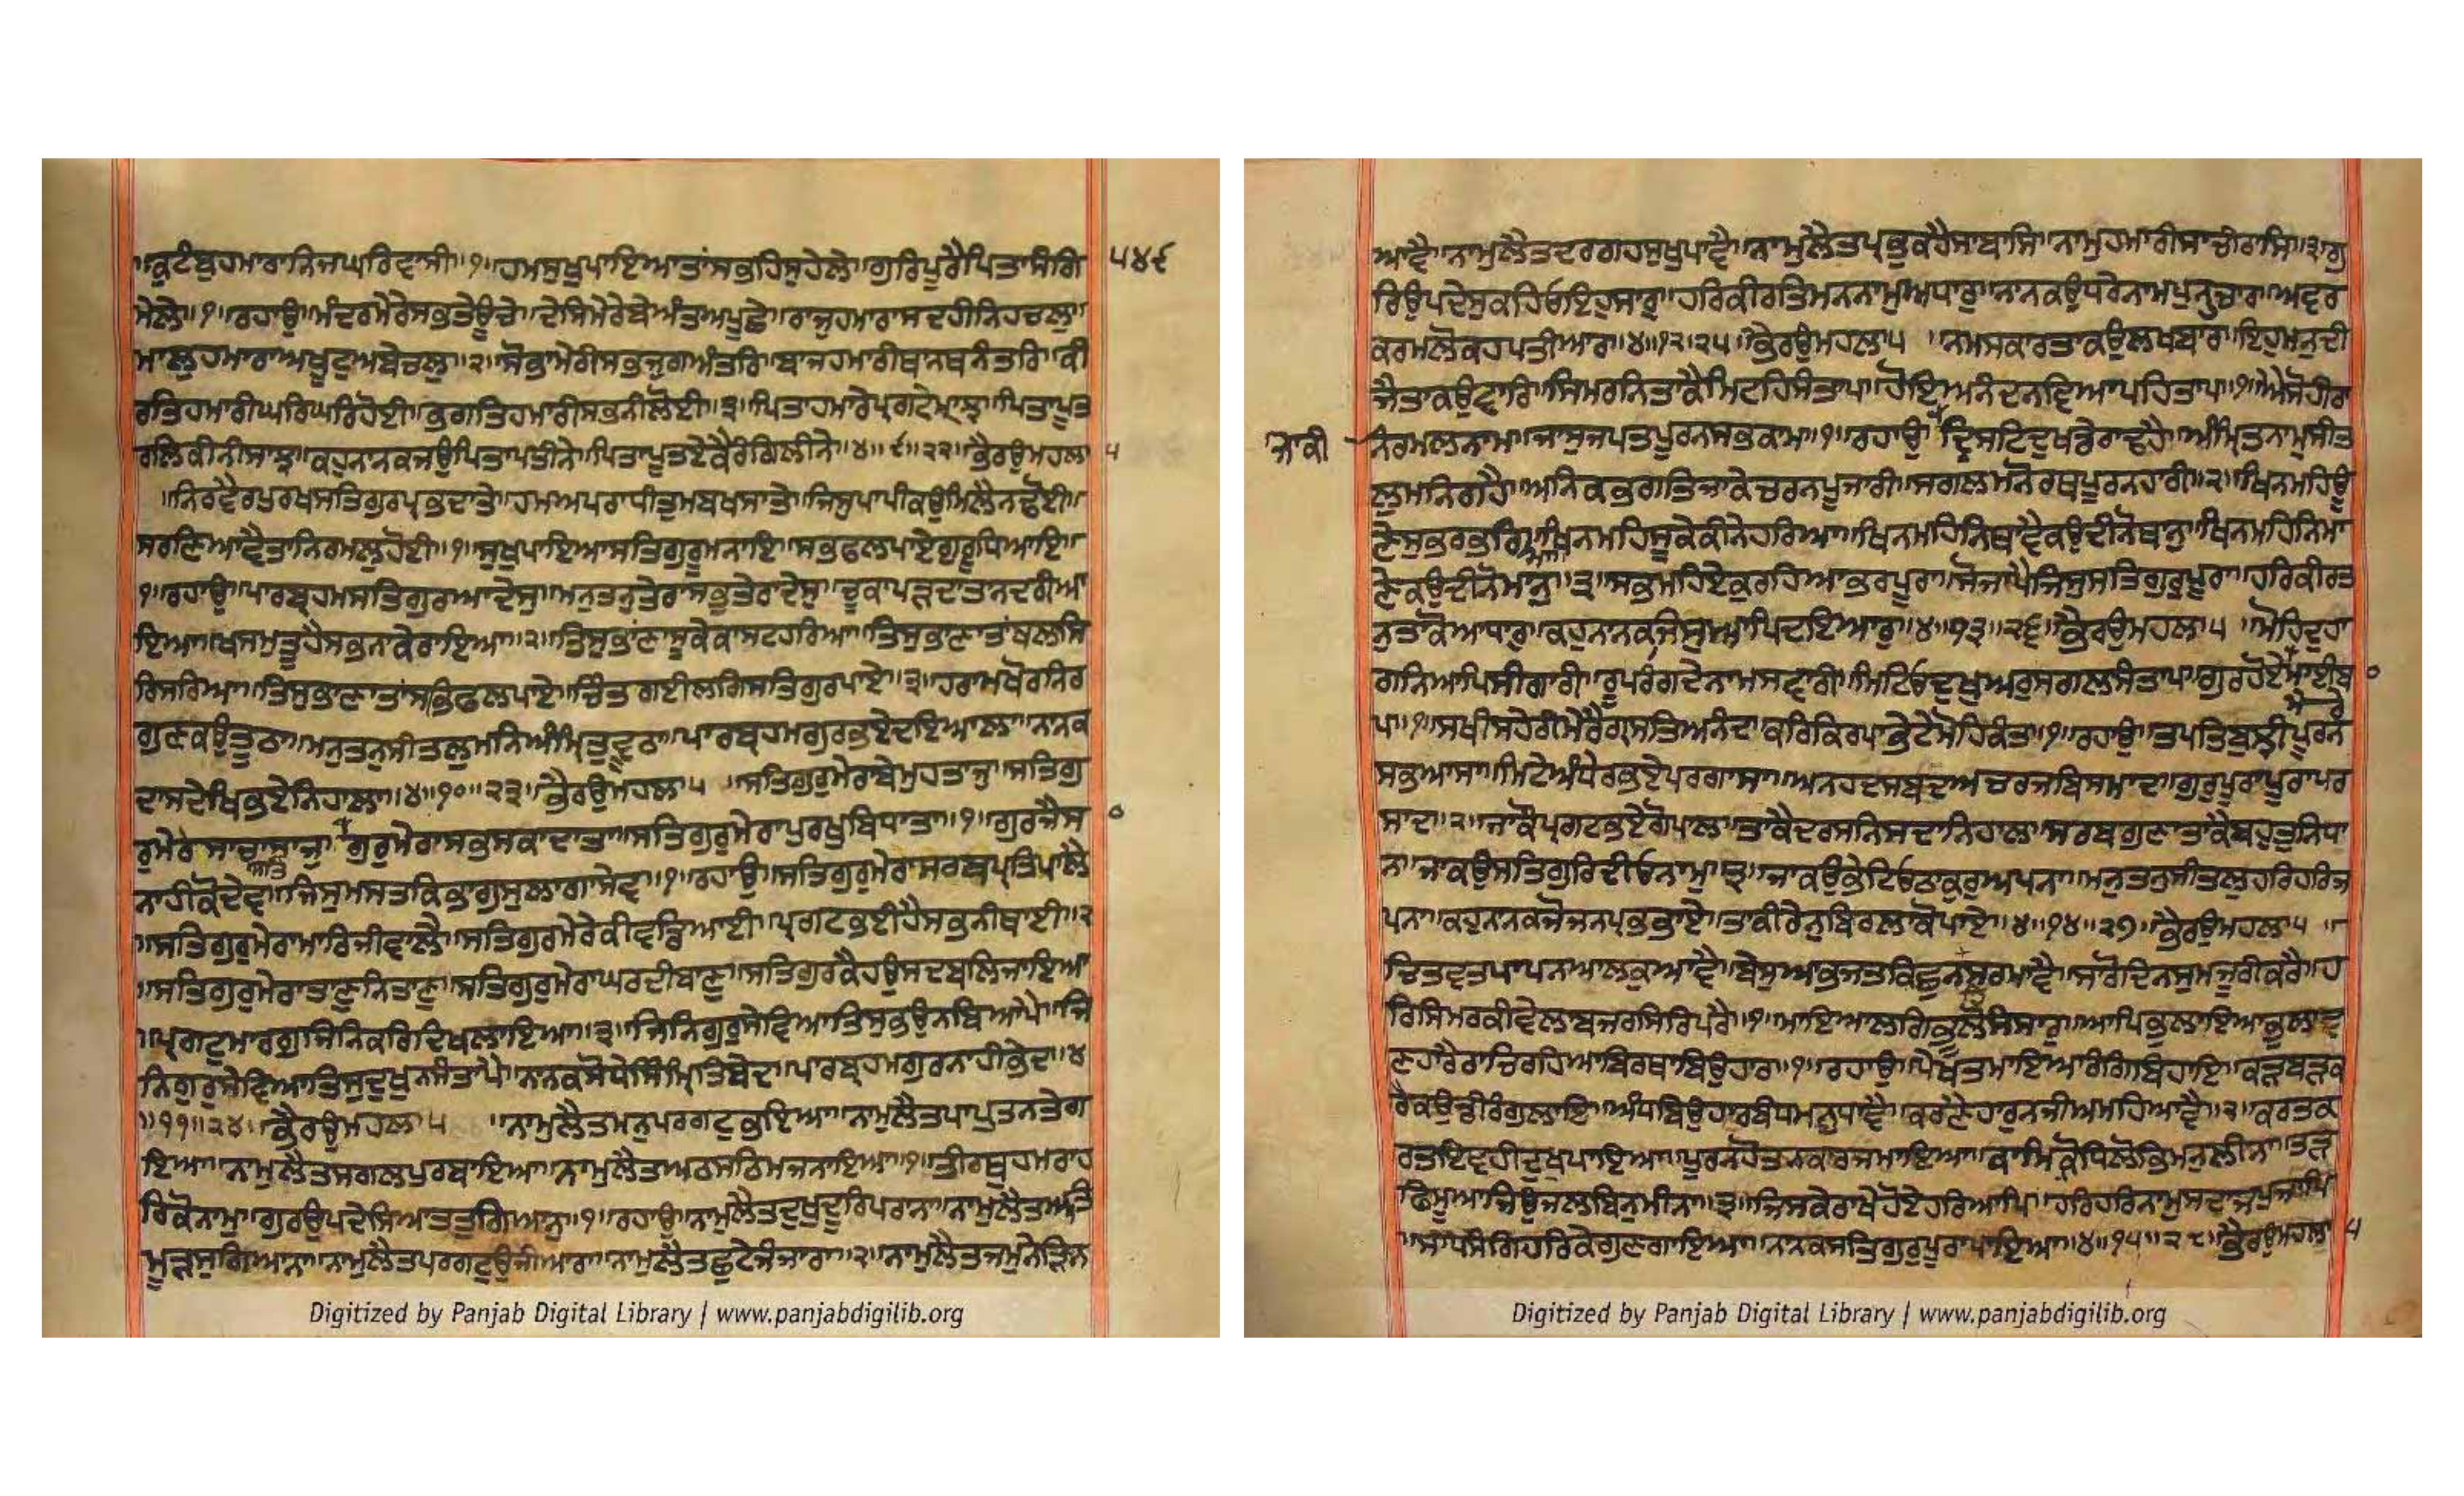 ਕੁਟੰਬੁਹਮਾਰਾਨਿਜਘਰਿਵਾਸੀ॥੧॥ਹਮਸੁਖੁਪਾਇਆਤਾਂਸਭਹਿਸੁਹੇਲੇ॥ਗੁਰਿਪੂਰੈਪਿਤਾਸੰਗਿ
੫੪੬
ਮੇਲੇ॥੧॥ਰਹਾਉ॥ਮੰਦਰਮੇਰੇਸਭਤੇਊਚੇ॥ਦੇਸਿਮੇਰੇਬੇਅੰਤਅਪੂਛੇ॥ਰਾਜੁਹਮਾਰਾਸਦਹੀਨਿਹਚਲੁ॥
ਮਾਲੁਹਮਾਰਾਅਖੂਟੁਅਬੇਚਲੁ॥੨॥ਸੋਭਾਮੇਰੀਸਭਜੁਗਅੰਤਰਿ॥ਬਾਜਹਮਾਰੀਥਾਨਥਨੰਤਰਿ॥ਕੀ
ਰਤਿਹਮਰੀਘਰਿਘਰਿਹੋਈ॥ਭਗਤਿਹਮਾਰੀਸਭਨੀਲੋਈ॥੩॥ਪਿਤਾਹਮਾਰੇਪ੍ਰਗਟੇਮਾਝ॥ਪਿਤਾਪੂਤ
ਰਲਿਕੀਨੀਸਾਝ॥ਕਹੁਨਾਨਕਜਉਪਿਤਾਪਤੀਨੇ॥ਪਿਤਾਪੂਤਏਕੈਰੰਗਿਲੀਨੇ॥੪॥੯॥੨੨॥ਭੈਰਉਮਹਲਾ੫
॥ਨਿਰਵੈਰਪੁਰਖਸਤਿਗੁਰਪ੍ਰਭਦਾਤੇ॥ਹਮਅਪਰਾਧੀਤੁਮਬਖਸਾਤੇ॥ਜਿਸੁਪਾਪੀਕਉਮਿਲੈਨਢੋਈ॥
ਸਰਣਿਆਵੈਤਾਨਿਰਮਲੁਹੋਈ॥੧॥ਸੁਖੁਪਾਇਆਸਤਿਗੁਰੂਮਨਾਇ॥ਸਭਫਲਪਾਏਗੁਰੂਧਿਆਇ॥
੧॥ਰਹਾਉ॥ਪਾਰਬ੍ਰਹਮਸਤਿਗੁਰਆਦੇਸੁ॥ਮਨੁਤਨੁਤੇਰਾਸਭੁਤੇਰਾਦੇਸੁ॥ਚੂਕਾਪੜਦਾਤਨਦਰੀਆ
ਇਆ॥ਖਸਮੁਤੂਹੈਸਭਨਾਕੇਰਾਇਆ॥੨॥ਤਿਸੁਭਾਣਾਸੂਕੇਕਾਸਟਹਰਿਆ॥ਤਿਸੁਭਾਣਾਤਾਂਥਲਸਿ
ਰਿਸਰਿਆ॥ਤਿਸੁਭਾਣਾਤਾਂਸਭਿਫਲਪਾਏ॥ਚਿੰਤਗਈਲਗਿਸਤਿਗੁਰਪਾਏ॥੩॥ਹਰਾਮਖੋਰਨਿਰ
ਗੁਣਕਉਤੂਠਾ॥ਮਨੁਤਨੁਸੀਤਲੁਮਨਿਅੰਮ੍ਰਿਤੁਵੂਠਾ॥ਪਾਰਬ੍ਰਹਮਗੁਰਭਏਦਇਆਲਾ॥ਨਾਨਕ
ਦਾਸਦੇਖਿਭਏਨਿਹਾਲਾ॥੪॥੧੦॥੨੩॥ਭੈਰਉਮਹਲਾ੫ ॥ਸਤਿਗੁਰੁਮੇਰਾਬੇਮੁਹਤਾਜੁ॥ਸਤਿਗੁ
ਰੁਮੇਰੇਸਾਚਾਸਾਜੁ॥ਗੁਰੁਮੇਰਾਸਭਸਕਾਦਾਤਾ॥ਸਤਿਗੁਰੁਮੇਰਾਪੁਰਖੁਬਿਧਾਤਾ॥੧॥ਗੁਰਜੈਸ
ਨਾਹੀਕੋਦੇਵ॥ਜਿਸੁਮਸਤਕਿਭਾਗੁਸੁਲਾਗਾਸੇਵ॥੧॥ਰਹਾਉ॥ਸਤਿਗੁਰੁਮੇਰਾਸਰਬਪ੍ਰਤਿਪਾਲੈ
॥ਸਤਿਗੁਰੁਮੇਰਾਮਾਰਿਜੀਵਾਲੈ॥ਸਤਿਗੁਰਮੇਰੇਕੀਵਡਿਆਈ॥ਪ੍ਰਗਟਭਈਹੈਸਭਨੀਥਾਈ॥੨
॥ਸਤਿਗੁਰੁਮੇਰਾਤਾਣੁਨਿਤਾਣੁ॥ਸਤਿਗੁਰੁਮੇਰਾਘਰਦੀਬਾਣੁ॥ਸਤਿਗੁਰਕੈਹਉਸਦਬਲਿਜਾਇਆ
॥ਪ੍ਰਗਟੁਮਾਰਗੁਜਿਨਿਕਰਿਦਿਖਲਾਇਆ॥੩॥ਜਿਨਿਗੁਰੁਸੇਵਿਆਤਿਸੁਭਉਨਬਿਆਪੈ॥ਜਿ
ਨਿਗੁਰੁਸੇਵਿਆਤਿਸੁਦੁਖੁਨਸੰਤਾਪੈ॥ਨਾਨਕਸੋਧੇਸਿੰਮ੍ਰਿਤਿਬੇਦ॥ਪਾਰਬ੍ਰਹਮਗੁਰਨਾਹੀਭੇਦ॥੪
॥੧੧॥੨੪॥ਭੈਰਉਮਹਲਾ੫ ॥ਨਾਮੁਲੈਤਮਨੁਪਰਗਟੁਭਇਆ॥ਨਾਮੁਲੈਤਪਾਪੁਤਨਤੇਗ
ਇਆ॥ਨਾਮੁਲੈਤਸਗਲਪੁਰਬਾਇਆ॥ਨਾਮੁਲੈਤਅਠਸਠਿਮਜਨਾਇਆ॥੧॥ਤੀਰਥੁਹਮਰਾਹ
ਰਿਕੋਨਾਮੁ॥ਗੁਰਉਪਦੇਸਿਆਤਤੁਗਿਆਨੁ॥੧॥ਰਹਾਉ॥ਨਾਮੁਲੈਤਦੁਖੁਦੂਰਿਪਰਾਨਾ॥ਨਾਮੁਲੈਤਅਤਿ
ਮੂੜਸੁਗਿਆਨਾ॥ਨਾਮੁਲੈਤਪਰਗਟੁਉਜੀਆਰਾ॥ਨਾਮੁਲੈਤਛੁਟੇਜੰਜਾਰਾ॥੨॥ਨਾਮੁਲੈਤਜਮੁਨੇੜਿਨ
Digitized by Panjab Digital Library | www.panjabdigilib.org
ਆਵੈ॥ਨਾਮੁਲੈਤਦਰਗਹਸੁਖੁਪਾਵੈ॥ਨਾਮੁਲੈਤਪ੍ਰਭੁਕਹੈਸਾਬਾਸਿ॥ਨਾਮੁਹਮਾਰੀਸਾਚੀਰਾਸਿ॥੩॥ਗੁ
ਰਿਉਪਦੇਸੁਕਹਿਓਇਹੁਸਾਰੁ॥ਹਰਿਕੀਰਤਿਮਨਨਾਮੁਅਧਾਰੁ॥ਨਾਨਕਉਧਰੇਨਾਮਪੁਨਹਚਾਰ॥ਅਵਰ
ਕਰਮਲੋਕਹਪਤੀਆਰ॥੪॥੧੨॥੨੫॥ਭੈਰਉਮਹਲਾ੫ ॥ਨਮਸਕਾਰਤਾਕਉਲਖਬਾਰ॥ਇਹੁਮਨੁਦੀ
ਜੈਤਾਕਉਵਾਰਿ॥ਸਿਮਰਨਿਤਾਕੈਮਿਟਹਿਸੰਤਾਪ॥ਹੋਇਅਨੰਦਨਵਿਆਪਹਿਤਾਪ॥੧॥ਐਸੋਹੀਰਾ
ਜਾਕੀ
ਨਿਰਮਲਨਾਮ॥ਜਾਸੁਜਪਤਪੂਰਨਸਭਕਾਮ॥੧॥ਰਹਾਉ॥ਦ੍ਰਿਸਟਿਦੁਖਡੇਰਾਢਹੈ॥ਅੰਮ੍ਰਿਤਨਾਮੁਸੀਤ
ਲੁਮਨਿਗਹੈ॥ਅਨਿਕਭਗਤਿਜਾਕੇਚਰਨਪੂਜਾਰੀ॥ਸਗਲਮਨੋਰਥਪੂਰਨਹਾਰੀ॥੨॥ਖਿਨਮਹਿਊ
ਣੇਸੁਭਰਭਰਿ॥ਖਿਨਮਹਿਸੂਕੇਕੀਨੇਹਰਿਆ॥ਖਿਨਮਹਿਨਿਥਾਵੇਕਉਦੀਨੋਥਾਨੁ॥ਖਿਨਮਹਿਨਿਮਾ
ਣੇਕਉਦੀਨੋਮਾਨੁ॥੩॥ਸਭਮਹਿਏਕੁਰਹਿਆਭਰਪੂਰਾ॥ਸੋਜਾਪੈਜਿਸੁਸਤਿਗੁਰੁਪੂਰਾ॥ਹਰਿਕੀਰਤ
ਨੁਤਾਕੋਆਧਾਰੁ॥ਕਹੁਨਾਨਕਜਿਸੁਆਪਿਦਇਆਰੁ॥੪॥੧੩॥੨੬॥ਭੈਰਉਮਹਲਾ੫ ॥ਮੋਹਿਦੁਹਾ
ਗਨਿਆਪਿਸੀਗਾਰੀ॥ਰੂਪਰੰਗਦੇਨਾਮਿਸਵਾਰੀ॥ਮਿਟਿਓਦੁਖੁਅਰੁਸਗਲਸੰਤਾਪ॥ਗੁਰਹੋਏਮਾਈਬ
ਮੇਰੇ
ਪ॥੧॥ਸਖੀਸਹੇਰੀਮੇਰੈਗ੍ਰਸਤਿਅਨੰਦ॥ਕਰਿਕਿਰਪਾਭੇਟੇਮੋਹਿਕੰਤ॥੧॥ਰਹਾਉ॥ਤਪਤਿਬੁਝੀਪੂਰਨ
ਸਭਆਸਾ॥ਮਿਟੇਅੰਧੇਰਭਏਪਰਗਾਸਾ॥ਅਨਹਦਸਬਦਅਚਰਜਬਿਸਮਾਦ॥ਗੁਰੁਪੂਰਾਪੂਰਾਪਰ
ਸਾਦ॥੨॥ਜਾਕੋਪ੍ਰਗਟਭਏਗੋਪਾਲ॥ਤਾਕੈਦਰਸਨਿਸਦਾਨਿਹਾਲ॥ਸਰਬਗੁਣਾਤਾਕੈਬਹੁਤੁਨਿਧਾ
ਨ॥ਜਾਕਉਸਤਿਗੁਰਿਦੀਓਨਾਮੁ॥੩॥ਜਾਕਉਭੇਟਿਓਠਾਕੁਰੁਅਪਨਾ॥ਮਨੁਤਨੁਸੀਤਲੁਹਰਿਹਰਿਜ
ਪਨਾ॥ਕਹੁਨਾਨਕਜੋਜਨਪ੍ਰਭਭਾਏ॥ਤਾਕੀਰੇਨੁਬਿਰਲਾਕੋਪਾਏ॥੪॥੧੪॥੨੭॥ਭੈਰਉਮਹਲਾ੫ ॥
ਚਿਤਵਤਪਾਪਨਆਲਕੁਆਵੈ॥ਬੇਸੁਆਭਜਤਕਿਛੁਨਸਰਮਾਵੈ॥ਸਾਰੋਦਿਨਸੁਮਜੂਰੀਕਰੈ॥ਹ
ਰਿਸਿਮਰਨਕੀਵੇਲਾਬਜਰਸਿਰਿਪਰੈ॥੧॥ਮਾਇਆਲਗਿਭੂਲੋਸੰਸਾਰੁ॥ਆਪਿਭੁਲਾਇਆਭੁਲਾਵ
ਣਹਾਰੈਰਾਚਿਰਹਿਆਬਿਰਥਾਬਿਉਹਾਰ॥੧॥ਰਹਾਉ॥ਪੇਖਤਮਾਇਆਰੰਗਬਿਹਾਇ॥ਕੜਬੜਕ
ਰੈਕਉਡੀਰੰਗੁਲਾਇ॥ਅੰਧਬਿਉਹਾਰਬੰਧਮਨੁਧਾਵੈ॥ਕਰਣੈਹਾਰੁਨਜੀਅਮਹਿਆਵੈ॥੨॥ਕਰਤਕ
ਰਤਇਵਹੀਦੁਖੁਪਾਇਆ॥ਪੂਰਨਹੋਤਨਕਾਰਜਮਾਇਆ॥ਕਾਮਿਕ੍ਰੋਧਿਲੋਭਿਮਨੁਲੀਨਾ॥ਤੜ
ਫਿਮੂਆਜਿਉਜਲਬਿਨੁਮੀਨਾ॥੩॥ਜਿਸਕੇਰਾਖੇਹੋਏਹਰਿਆਪਿ॥ਹਰਿਹਰਿਨਾਮੁਸਦਾਜਪੁਜਾਪਿ
॥ਸਾਧਸੰਗਿਹਰਿਕੇਗੁਣਗਾਇਆ॥ਨਾਨਕਸਤਿਗੁਰੁਪੂਰਾਪਾਇਆ॥੪॥੧੫॥੨੮॥ਭੈਰਉਮਹਲਾ੫
Digitized by Panjab Digital Library | www.panjabdigilib.org